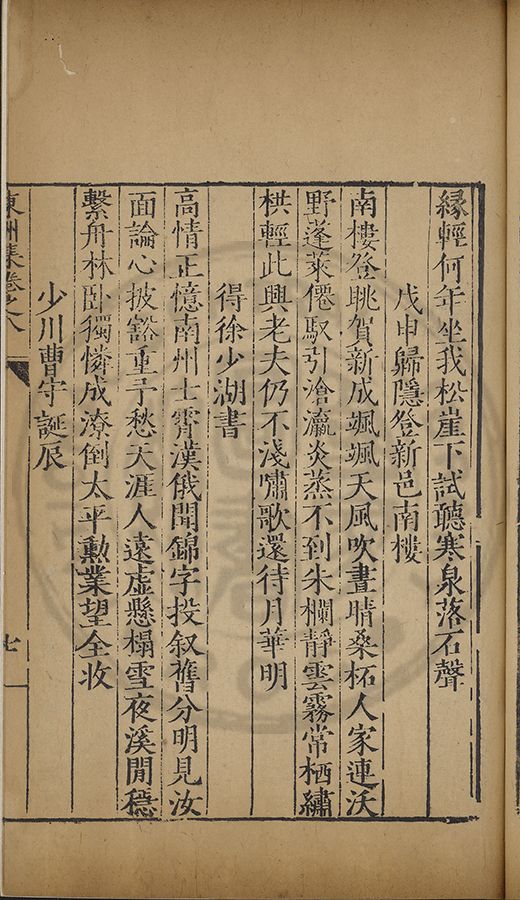 緣輕何年坐我松崖下試聽寒泉落石聲
戊申歸隱登新邑南樓
南樓登眺賀新成颯颯天風吹晝晴桑柘人家連沃
野蓬萊僊馭引滄瀛炎蒸不到朱欄靜雲霧常栖繡
栱輕此興老夫仍不淺嘯歌還待月華明
得徐少湖書
高情正憶南州士霄漢俄聞錦字投叙舊分明見汝
面論心披豁重予愁天涯人遠虛懸榻雪夜溪閒穩
繫舟林臥獨憐成潦倒太平勳業望全收
少川曹守誕辰
東洲集卷之八
七